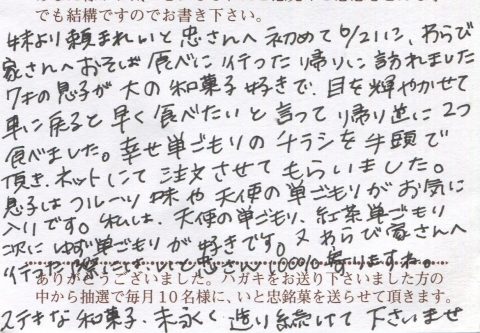 でも結構ですのでお書き下さい。
妹より頼まれいと忠さんへ初めて6/21に、わらび
家さんへおそば食べに行った帰りに訪れました
7才の息子が大の和菓子好きで、目を輝やかせて
車に戻ると早く食べたいと言って帰り道に2つ
食べました。幸せ単ごもりのチラシを店頭で
頂き、ネットにて注文させてもらいました。
息子はフルーツ味や天使の単ごもりがお気に
入りです。私は、天使の単ごもり、紅茶単ごもり
次にゆず単ごもりが好きです。又わらび家さんへ
行った際には、いと忠さん100%寄りますね。
ありがとうございました。ハガキをお送り下さいました方の
中から抽選で毎月10名様に、いと忠銘菓を送らせて頂きます。
ステキな和菓子、末永く造り続けて下さいませ